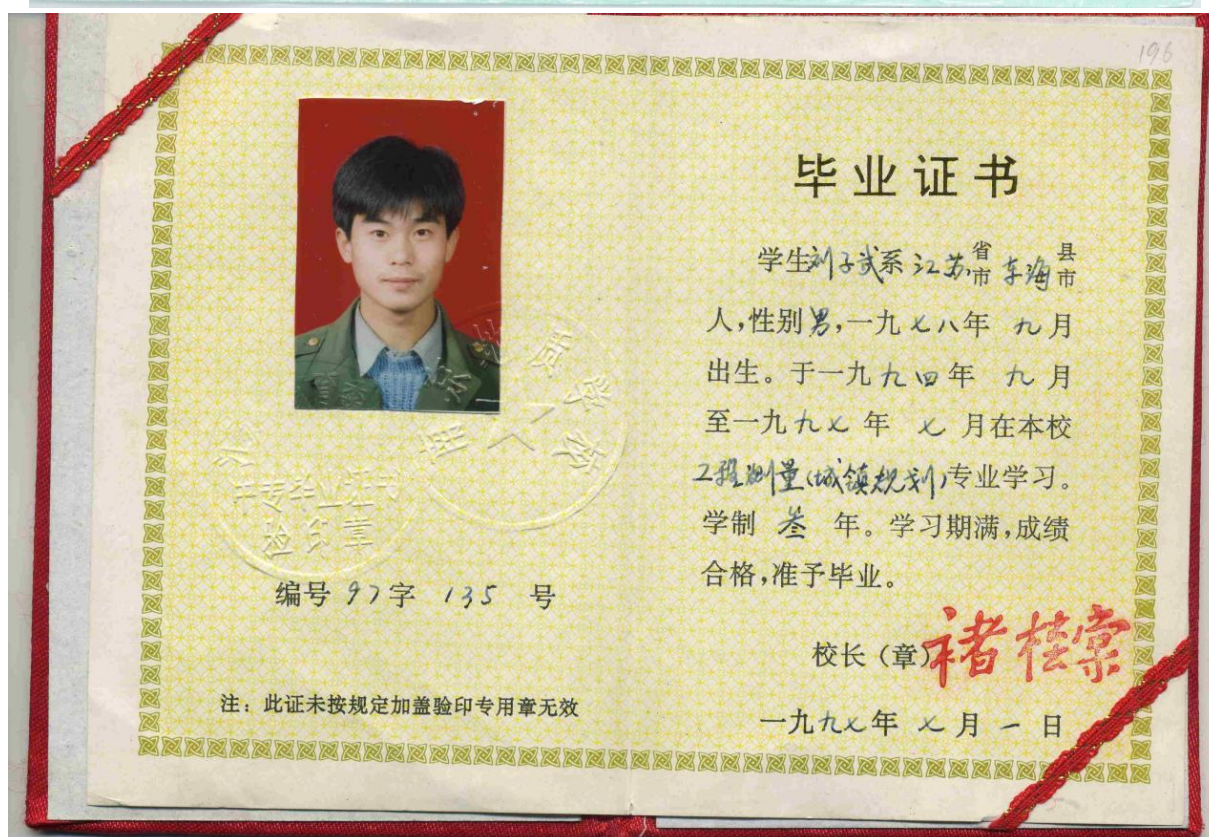 196
编号 97字 135 号
注：此证未按规定加盖验印专用章无效
毕业证书
学生刘子武系江苏省市东海县市
人,性别男,一九七八年 九月
出生。于一九九四年 九月
至一九九七年 七月在本校
工程测量(城镇规划)专业学习。
学制 叁 年。学习期满,成绩
合格,准予毕业。
校长（章）褚桂棠
一九九七年 七月 一日
中专毕业证书
验印章